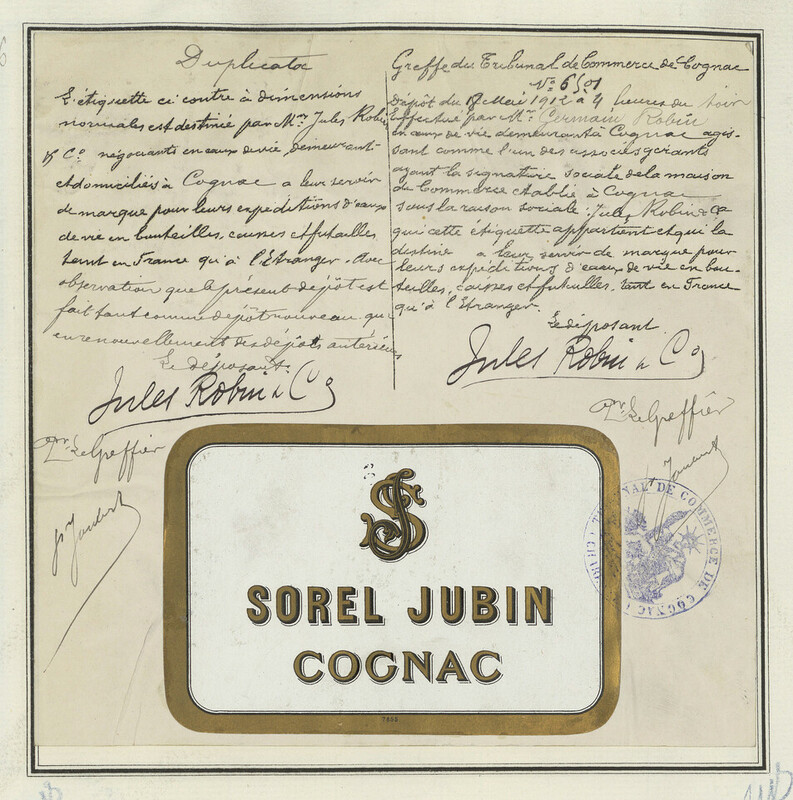 Duplicata
L'étiquette ci contre à dimensions
normales est destinée par Mrs Jules Robin
& Co négociants en eaux de vie, demeurant
et domiciliés à Cognac a leur servir
de marque pour leurs expéditions d'eaux
de vie en bouteilles, caisses et futailles
tant en France qu'à l'Etranger. Avec
observation que le présent dépôt est
fait tant comme dépôt nouveau qu'
en renouvellement des dépôts antérieurs
Le déposant.
Jules Robin & Co
Le Greffier
Greffe du Tribunal de Commerce de Cognac
No 6501
Dépôt du Mai 1912 a 4 heures du soir
Effectué par Mr Germain Robin
en eaux de vie demeurant à Cognac agis-
sant comme l'un des associés gérants
ayant la signature sociale de la maison
de Commerce établie à Cognac
sous la raison sociale: Jules Robin & Co
qui cette étiquette appartient et qui la
destine a leur servir de marque pour
leurs expéditions d'eaux de vie en bou-
teilles, caisses et futailles, tant en France
qu'à l'Etranger.
Le déposant.
Jules Robin & Co
Le Greffier
TRIBUNAL DE COMMERCE DE COGNAC
JS
SOREL JUBIN
COGNAC